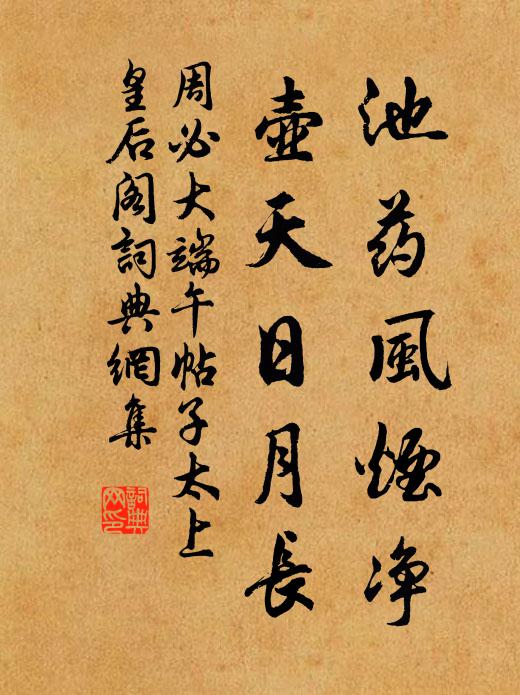 池药風煙净
壺天日月長
周必大端午帖子太上
皇后阁詞典網集
詞典
网印